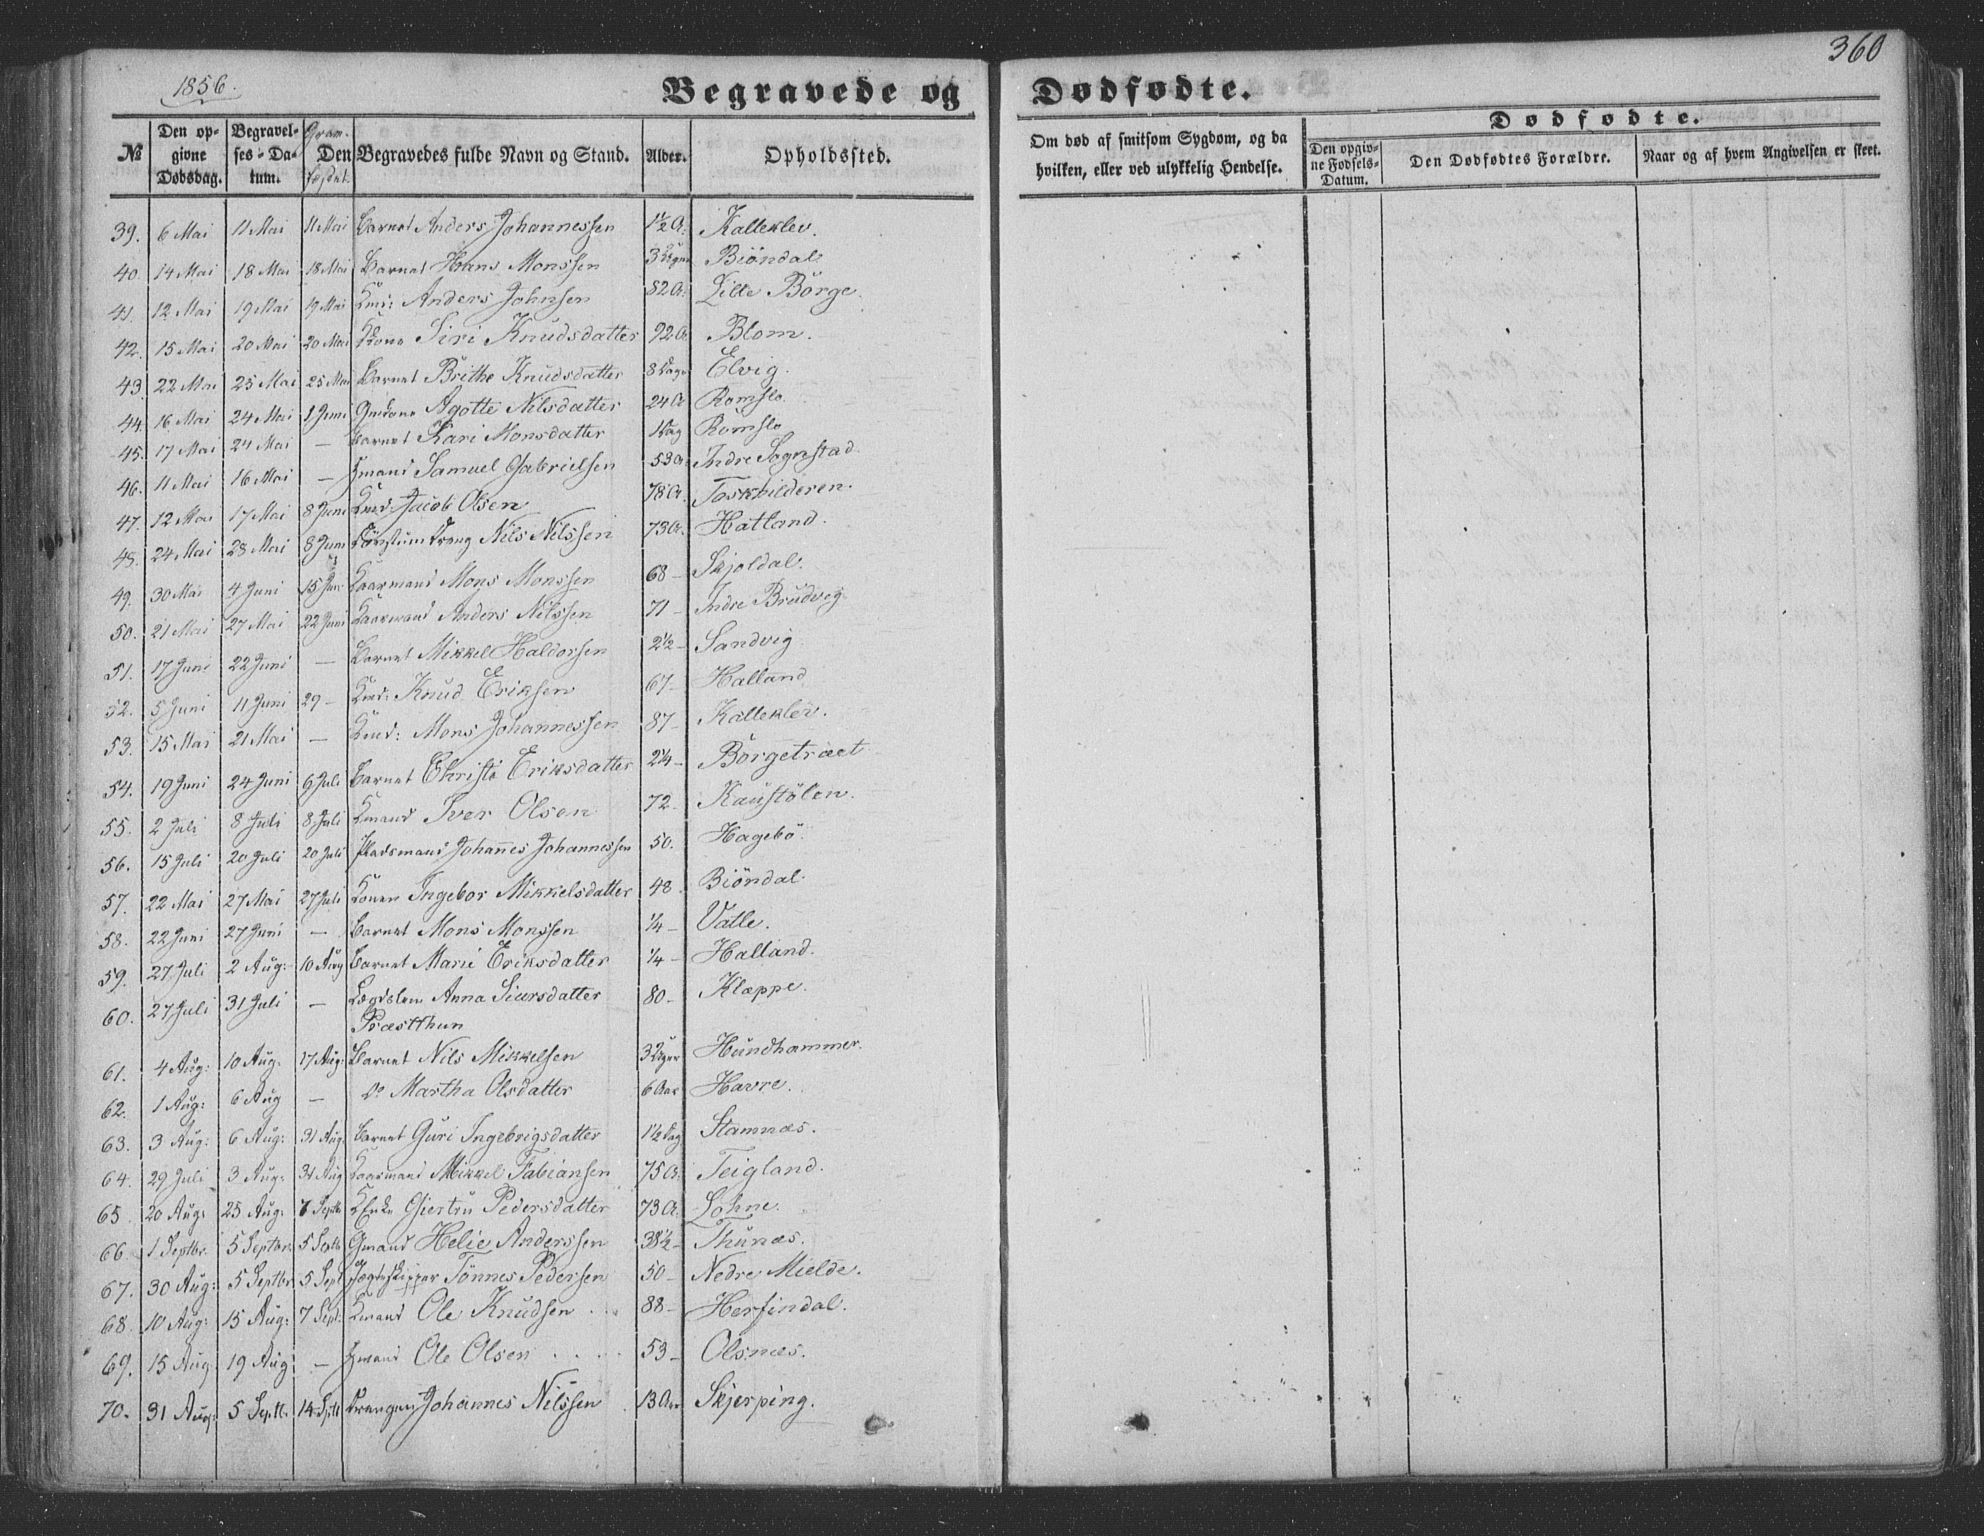 1856.
360
Begravede og Dødfødte.
№ Den opgivne Dødsdag. Begravelses-Datum. Den Begravedes fulde Navn og Stand. Alder. Opholdssted. Om død af smitsom Sygdom, og da hvilken, eller ved ulykkelig Hendelse. Dødfødte. Den opgivne Fødsels-Datum. Den Dødfødtes Forældre. Naar og af hvem Angivelsen er skeet.
39. 6 Mai 11 Mai 11 Mai Barnet Anders Johannessen 1½ A: Kalleklev.
40. 14 Mai 18 Mai 18 Mai Barnet Hans Monssen 3 Uger Biöndal
41. 12 Mai 19 Mai 19 Mai Kmd: Anders Johnsen 82 A: Lille Börge.
42. 15 Mai 20 Mai 20 Mai Kone Siri Knudsdatter 92 A Blom.
43. 22 Mai 25 Mai 25 Mai Barnet Brithe Knudsdatter 8 Dage Elvig.
44. 16 Mai 24 Mai 1 Juni Agotte Nilsdatter 24 A Romslo.
45. 17 Mai 24 Mai — Barnet Kari Monsdatter 1 Dag Romslo
46. 11 Mai 16 Mai — Samuel Gabrielsen 53 A: Indre Sognstad
47. 12 Mai 17 Mai 8 Juni Kmd: Jacob Olsen 78 A: Toskhilderen.
48. 24 Mai 28 Mai 8 Juni Nils Nilssen 73 A: Hatland.
49. 30 Mai 4 Juni 15 Jun Kaarmand Mons Monssen 68 — Skjoldal.
50. 21 Mai 27 Mai 22 Juni Kaarmand Anders Nilssen 71 — Indre Brudvig
51. 17 Juni 22 Juni — Barnet Mikkel Haldorsen 2½ — Sandvig
52. 5 Juni 11 Juni 29 — Kmd: Knud Eriksen 67 — Halland
53. 15 Mai 21 Mai — Kmd: Mons Johannessen 87 — Kalleklev.
54. 19 Juni 24 Juni 6 Juli Barnet Christi Eriksdatter 2¼ — Börgetræet
55. 2 Juli 8 Juli 8 Juli Kmand Iver Olsen 72 — Kaustölen.
56. 15 Juli 20 Juli 20 Juli Pladsmand Johannes Johannessen 50. Hagebö.
57. 22 Mai 27 Mai 27 Juli Konen Ingebor Mikkelsdatter 48 Biöndal
58. 22 Juni 27 Juni — Barnet Mons Monssen ¼ — Vatle.
59. 27 Juli 2 Aug: 10 Aug Barnet Marie Eriksdatter ¼ — Halland.
60. 27 Juli 31 Juli — Lægdslem Anna Siursdatter 80 — Klæppe.
Præstthun
61. 4 Aug: 10 Aug: 17 Aug: Barnet Nils Mikkelsen 3 Uger Hundhammer.
62. 1 Aug: 6 Aug — Do Martha Olsdatter 6 Aar Havre.
63. 3 Aug: 6 Aug: 31 Aug Barnet Guri Ingebrigsdatter 1½ Dag Stamnæs.
64. 29 Juli 3 Aug: 31 Aug Kaarmand Mikkel Fabiansen 75 A. Teigland.
65. 20 Aug: 25 Aug: 7 Septb Giertru Pedersdatter 73 A. Lohne.
66. 1 Septbr. 5 Septbr. 5 Septb Gmand Helie Anderssen 38½ — Thunæs.
67. 30 Aug: 5 Septbr 5 Sept Jægtskipper Tönnes Pedersen 50 — Nedre Mielde.
68. 10 Aug: 15 Aug: 7 Sept: Kmand Ole Knudsen 88 — Herfindal.
69. 15 Aug 19 Aug — Ole Olsen 53 — Olsnæs.
70. 31 Aug: 5 Septb. 14 Septb Drengen Johannes Nilssen 13 Aar Skjerping.